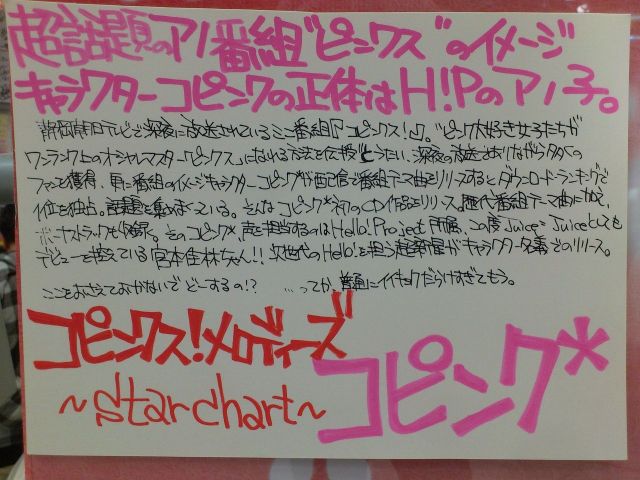 超話題のアノ番組“ピンクス”のイメージ
キャラクターコピンクの正体はH!Pのアノ子。
静岡朝日テレビで深夜に放送されているミニ番組『コピンクス!』。“ピンク大好き女子たちが
ワンランク上のオシャレマスター“ピンクス”になれる方法を伝授”とうたい、深夜の放送でありながら多くの
ファンを獲得、更に番組のイメージキャラクターコピンクが配信で番組テーマ曲をリリースするとダウンロードランキングで
1位を独占。話題を集めまくっている。そんなコピンク*初のCD作品をリリース。歴代番組テーマ曲に加えて、
ボーナストラックも収録。そのコピンク*、声を担当するのはHello! Project所属、この度Juice=Juiceとしても
デビューを控えている宮本佳林ちゃん!! 次世代のHello!を担う超新星がキャラクター名義でのリリース。
ここをおさえておかないでどーするの!? …ってか、普通にイイキョクだらけすぎてもう。
コピンクス!メロディーズ
~Star chart~
コピンク*